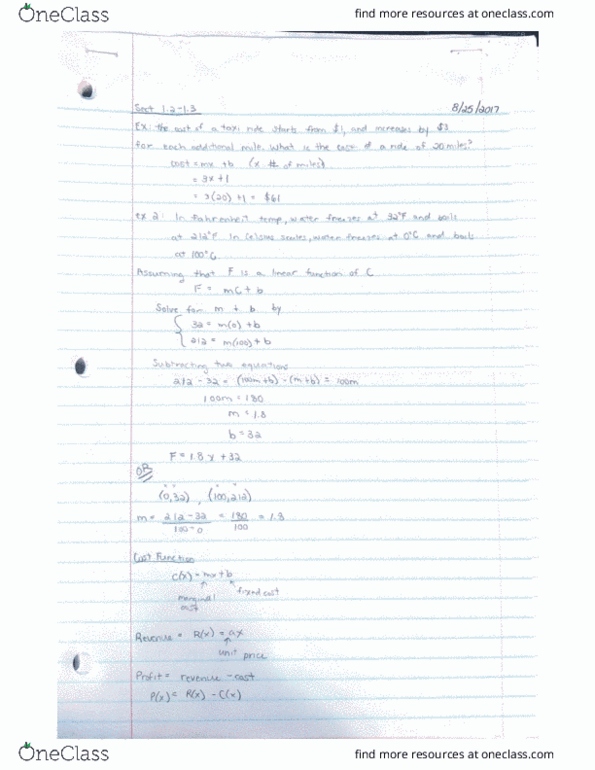 OneClass
find more resources at oneclass.com
Sect 1.2-1.3
8/25/2017
Ex: the cost of a taxi ride starts from $1, and increases by $3
for each additional mile. What is the cost of a ride of 20 miles?
cost = mx + b (x # of miles)
= 3x + 1
= 3(20) + 1 = $61
ex 2: In fahrenheit temp, water freezes at 32°F and boils
at 212°F In Celsius scales, water freezes at 0°C and boils
at 100°C
Assuming that F is a linear function of C
F = mC + b
Solve for m + b by
32 = m(0) + b
212 = m(100) + b
Subtracting two equations
212 - 32 = (100m + b) - (m + b) = 100m
100m = 180
m = 1.8
b = 32
F = 1.8x + 32
OR
(0,32), (100,212)
m = 212 - 32 = 180 = 1.8
100 - 0 100
Cost Function
C(x) = mx + b
fixed cost
marginal
cost
Revenue = R(x) = ax
unit price
Profit = revenue - cost
P(x) = R(x) - C(x)
OneClass
find more resources at oneclass.com